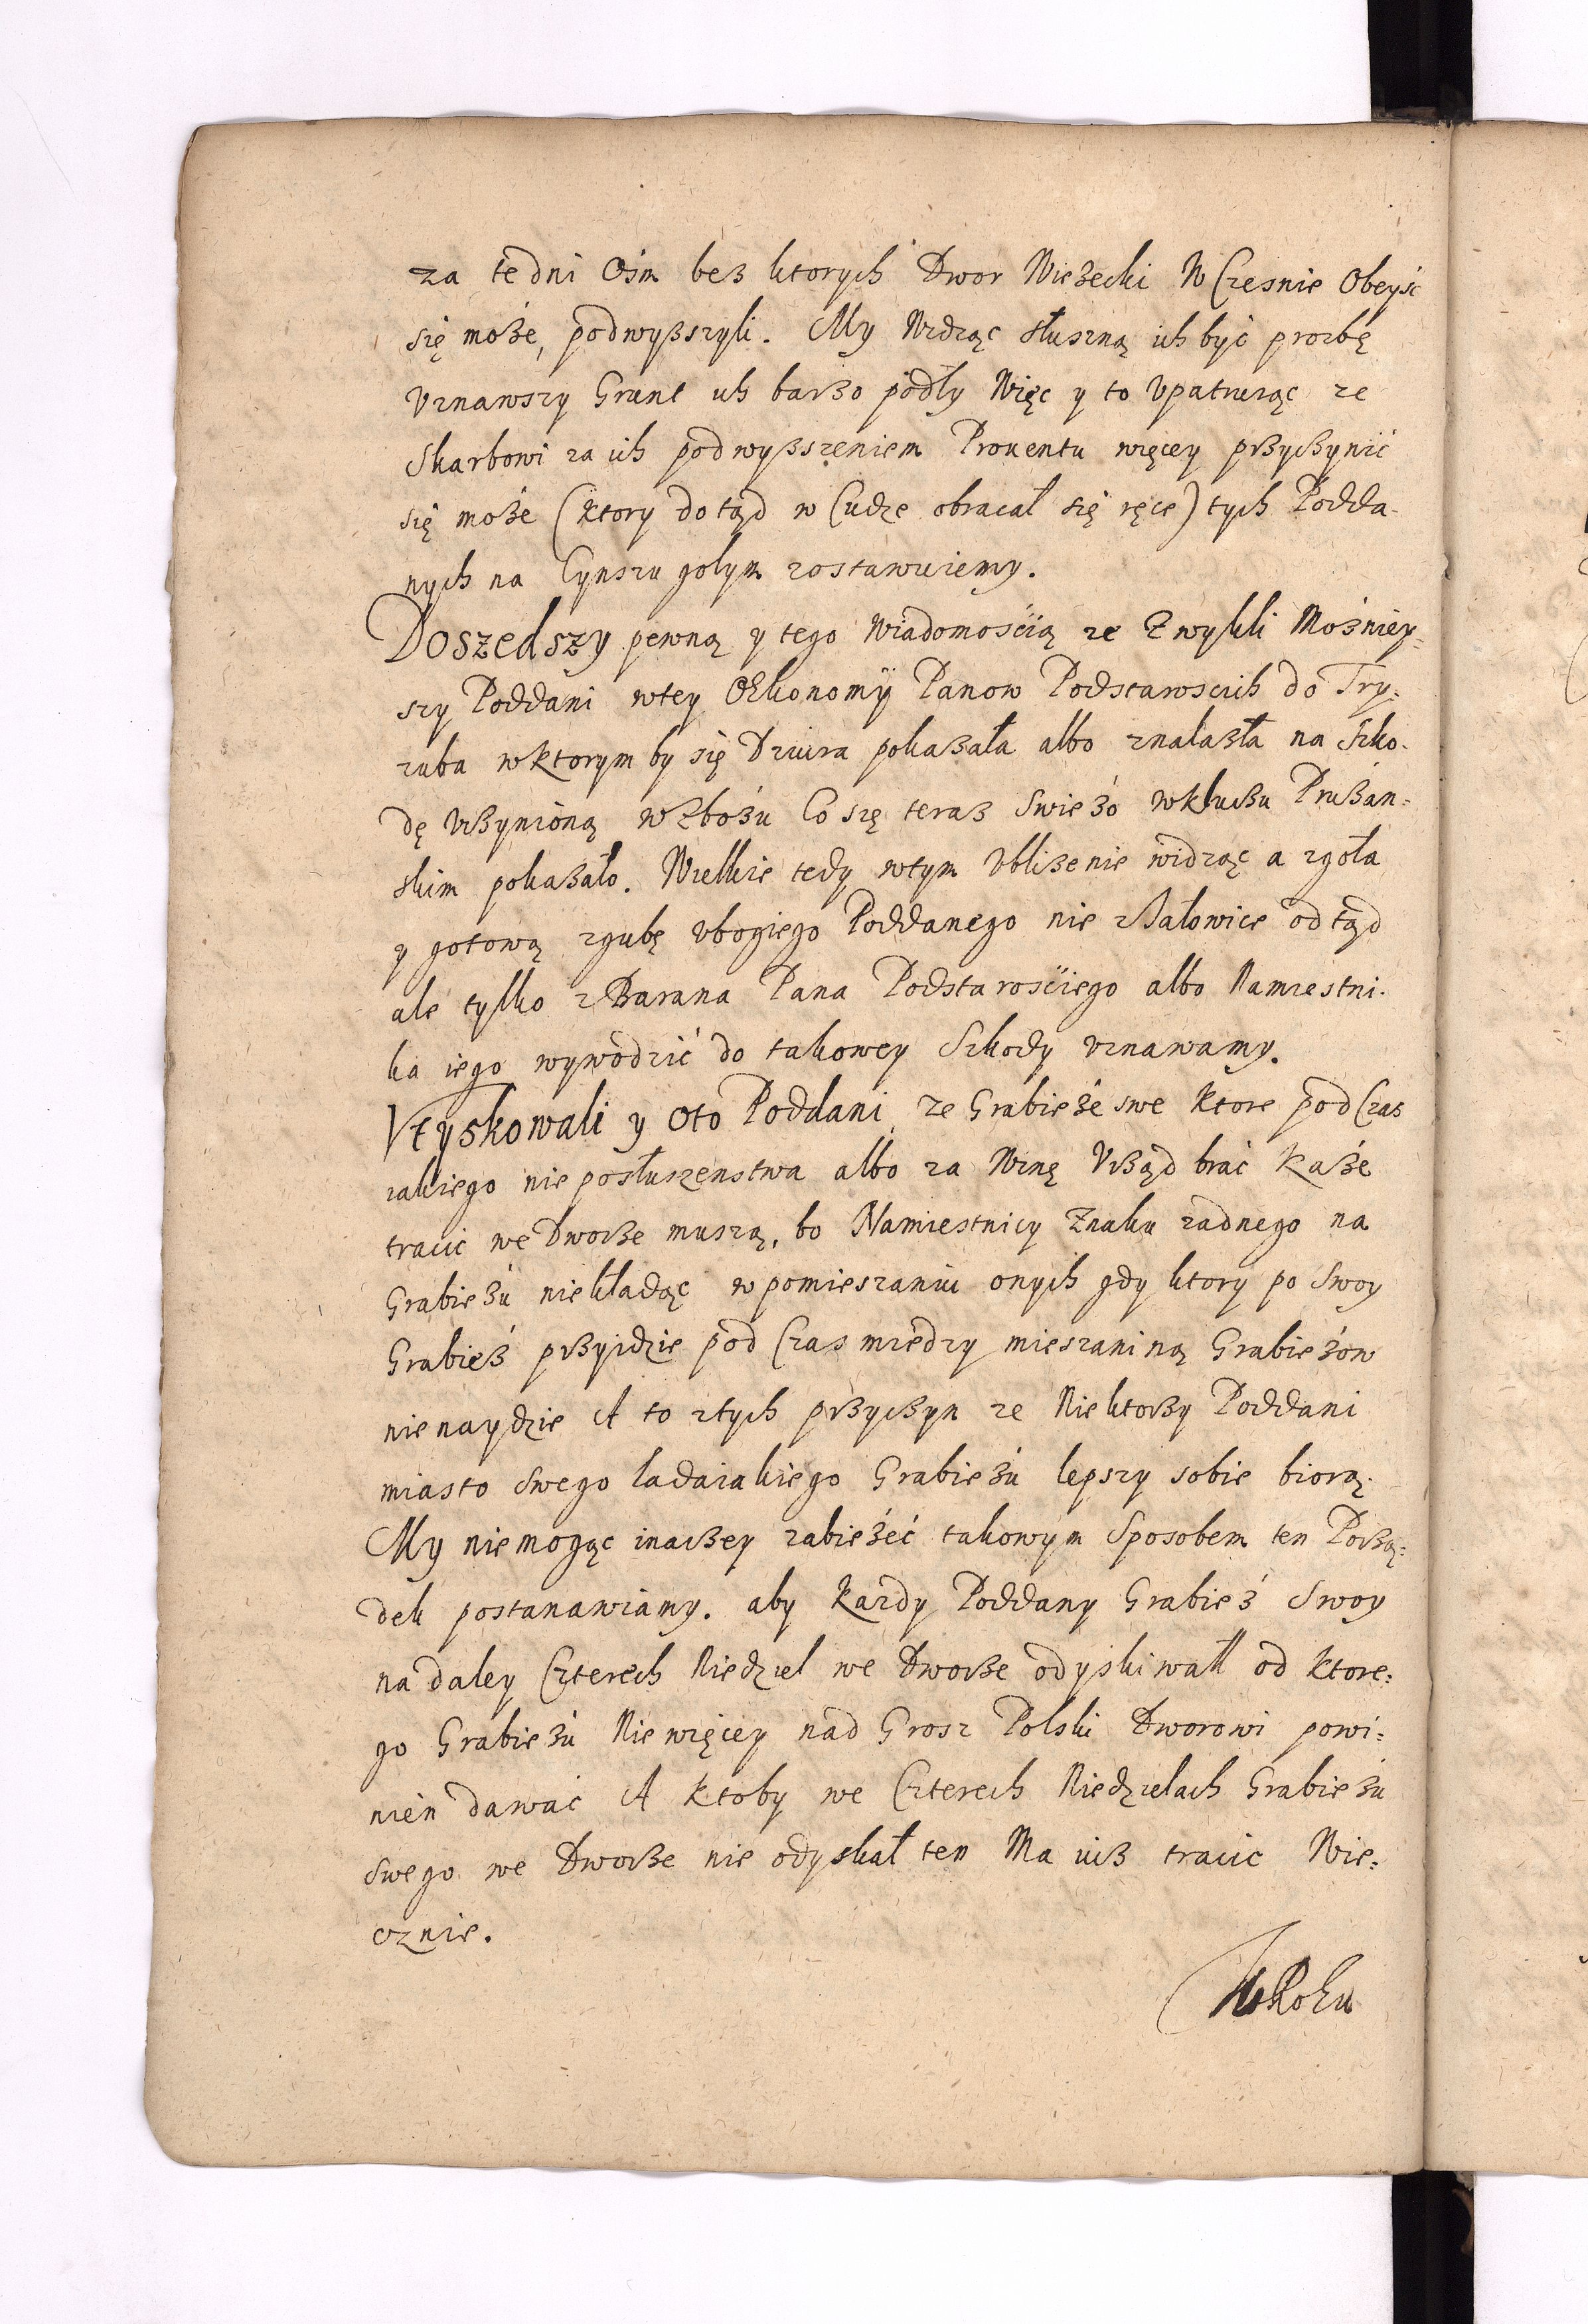 za te dni Ośm bez ktorych Dwor Wieżecki W Czesnie Obeyść
się może, podwyszszyli. My Widząc słuszną ich być prozbę
Vznawszy Grunt ich barzo podły Więc y to Vpatruiąc ze
Skarbowi za ich podwyszszeniem Prouentu więcey przyczynić
się może (ktory dotąd w Cudze obracał się ręce) tych Podda-
nych na Cynszu gołym zostawuiemy.
Doszedszy pewną y tego Wiadomośćią ze Zwykli Możniey-
szy Poddani w tey Oekonomÿ Panow Podstarosćich do Try-
zuba w ktorym by się Dziura pokazała albo znalazła na Szko-
dę vczynioną w Zbożu Co się teraz Swieżo w kluczu Prużań-
skim pokazało. Wielkie tedy w tym Vbliżenie widząc a zgoła
y gotową zgubę vbogiego Poddanego nie z Jałowice odtąd
ale tylko z Barana Pana Podstarośćiego albo Namiestni-
ka iego wywodzić do takowey Szkody vznawamy.
Vtyskowali y Oto Poddani ze Grabieże swe ktore pod Czas
iakiego nieposłuszenstwa albo za Winę Vrząd brać każe
tracic we Dworze muszą, bo Namiestnicy Znaku zadnego na
Grabieżu niekładąc w pomieszaniu onych gdy ktory po Swoy
Grabież przyidzie pod Czas miedzy mieszaniną Grabieżow
nienaydzie A to z tych przyczyn ze Niektorzy Poddani
miasto Swego ladaiakiego Grabieżu lepszy sobie biorą.
My niemogąc inaczey zabieżeć takowym Sposobem ten Porzą-
dek postanawiamy. aby kazdy Poddany Grabież Swoy
na daley Czterech Niedziel we Dworze odyskiwał od ktore-
go Grabieżu Niewięcey nad Grosz Polski Dworowi powi-
nien dawać A ktoby we Czterech Niedzielach Grabieżu
swego we Dworze nie odyskał ten Ma iusz tracic Wie-
cznie.
W Roku